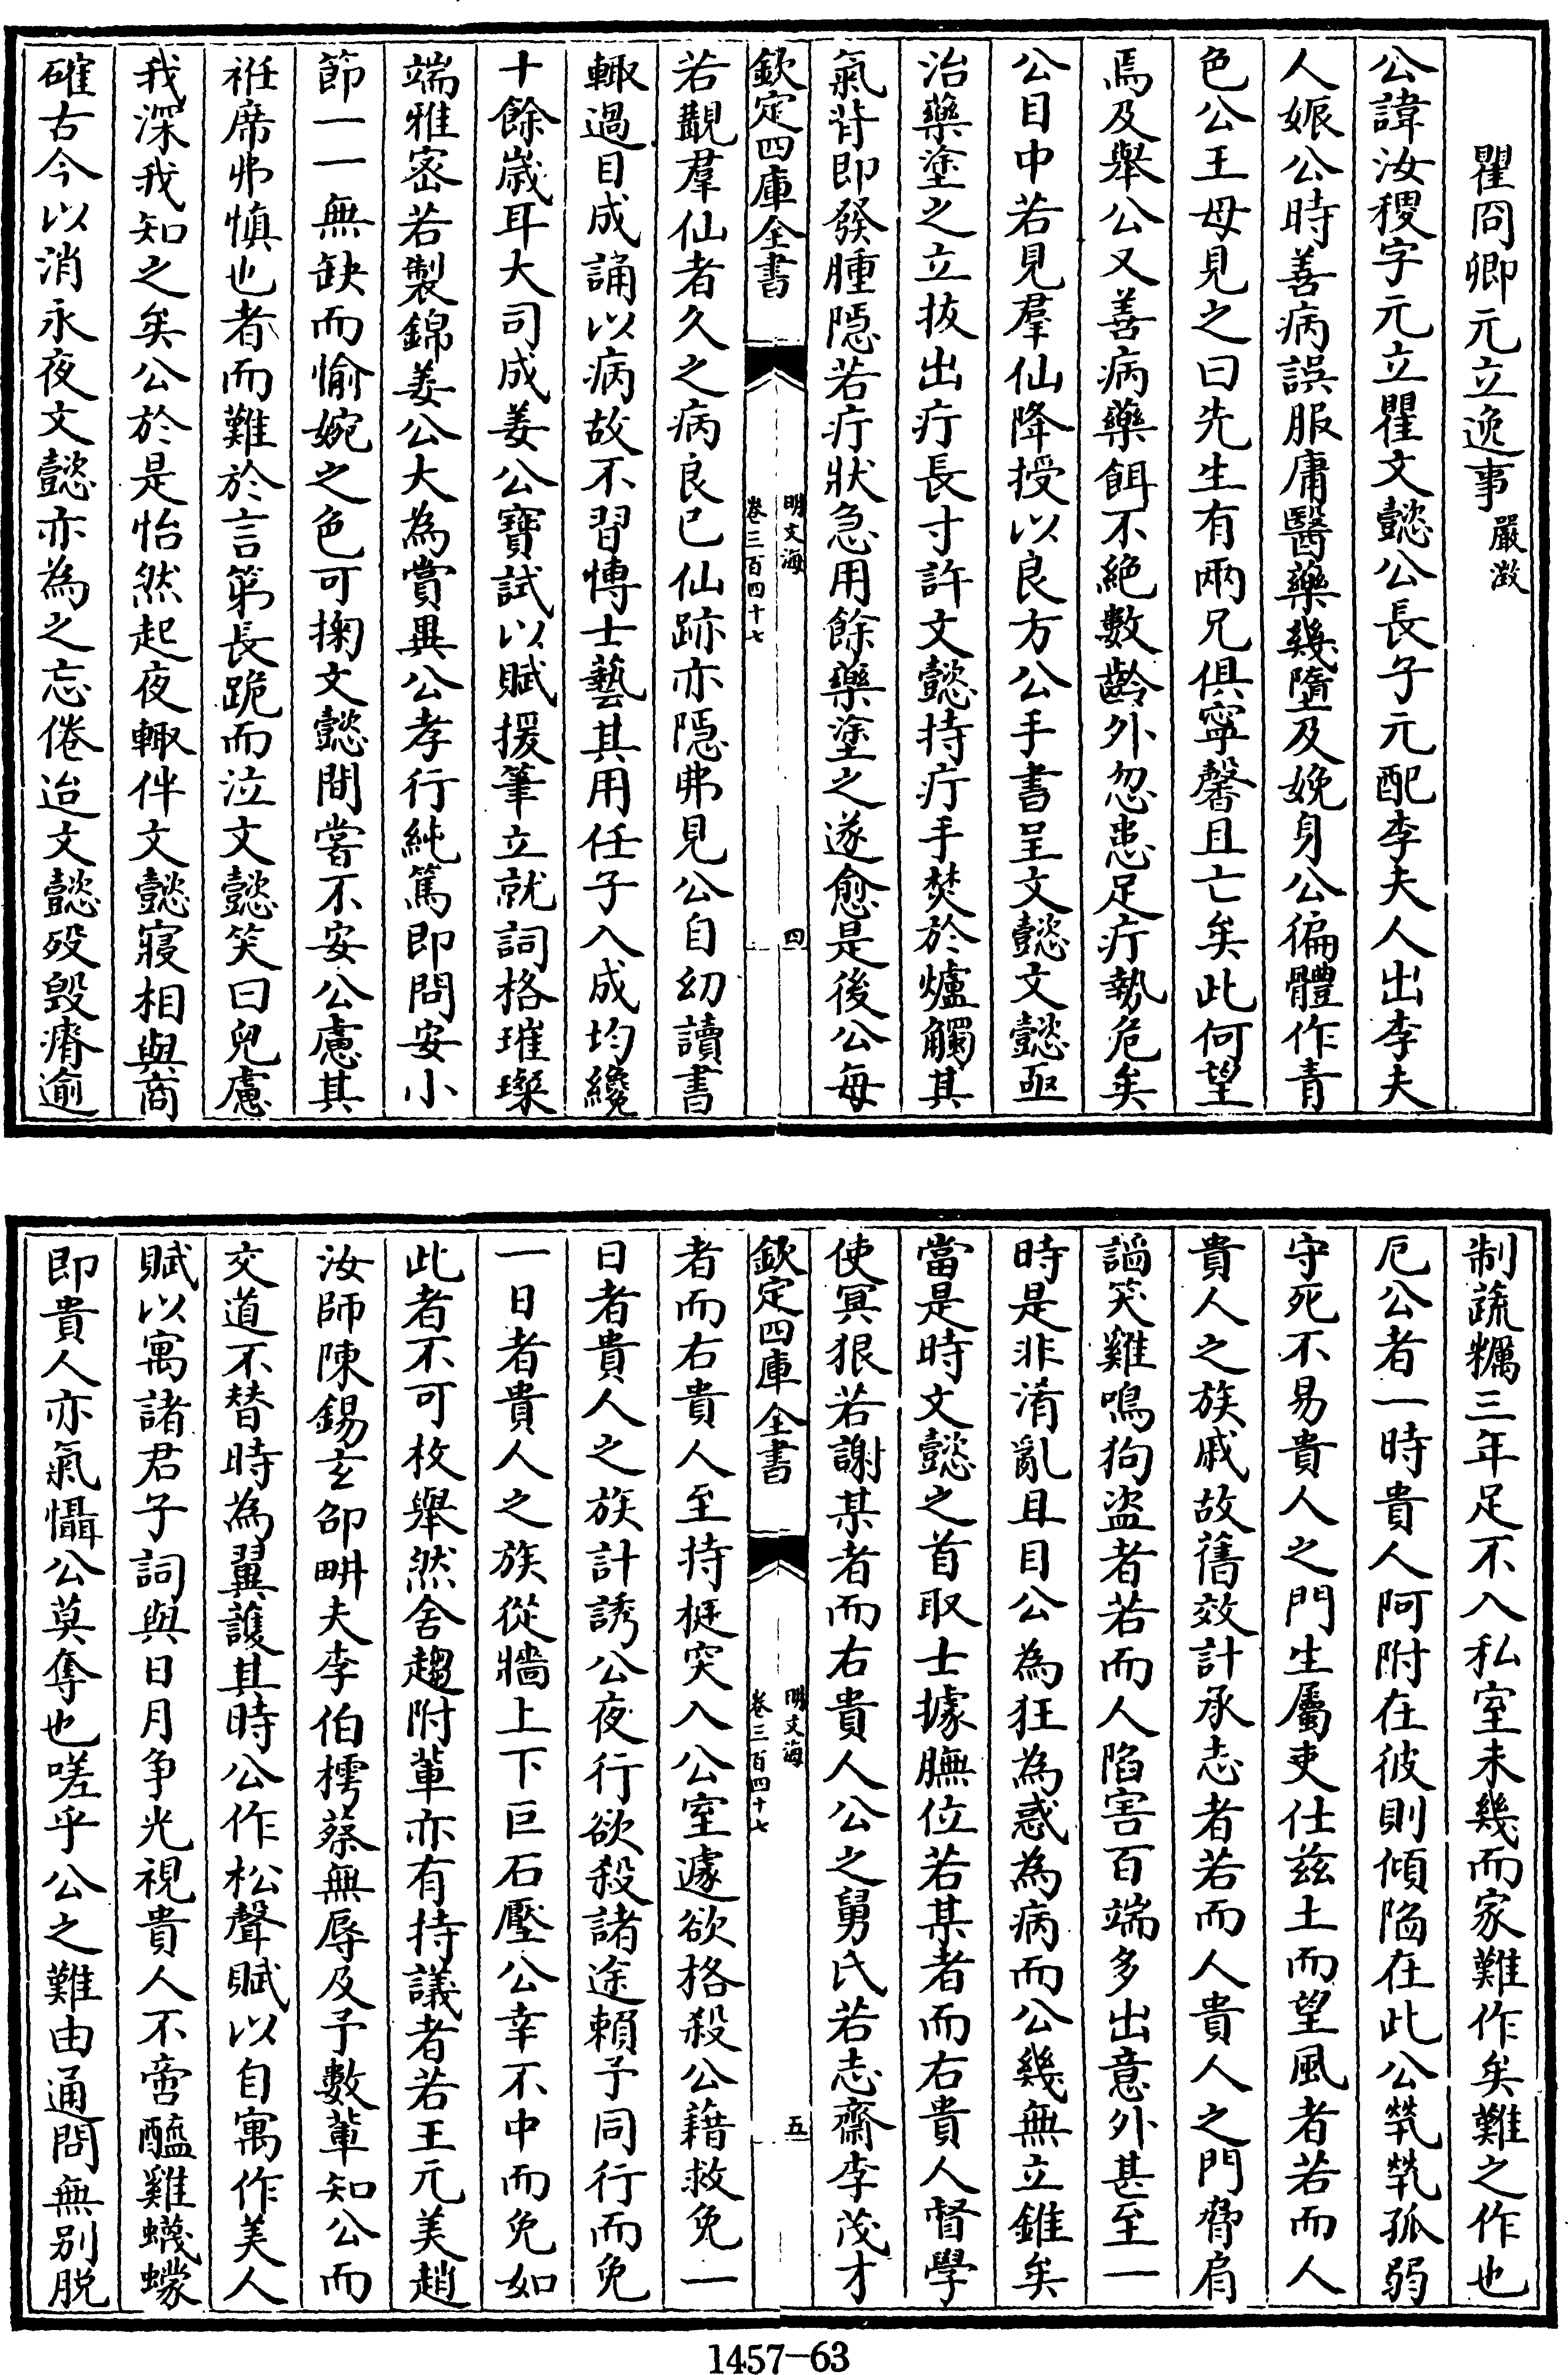 瞿冏卿元立逸事 嚴澂
公諱汝稷字元立瞿文懿公長子元配李夫人出李夫
人娠公時善病誤服庸醫藥幾墮及娩身公徧體作青
色公王母見之曰先生有兩兄俱寧馨且亡矣此何望
焉及舉公又善病藥餌不絶數齡外忽患足疔勢危矣
公目中若見羣仙降授以良方公手書呈文懿文懿亟
治藥塗之立拔出疔長寸許文懿持疔手焚於爐觸其
氣背即發腫隠若疔狀急用餘藥塗之遂愈是後公每
欽定四庫全書
明文海
卷三百四十七
四
若覩羣仙者久之病良已仙跡亦隠弗見公自幼讀書
輙過目成誦以病故不習博士藝其用任子入成均纔
十餘嵗耳大司成姜公寶試以賦援筆立就詞格璀璨
端雅宻若製錦姜公大為賞異公孝行純篤即問安小
節一一無缺而愉婉之色可掬文懿間嘗不安公慮其
袵席弗慎也者而難於言第長跪而泣文懿笑曰兒慮
我深我知之矣公於是怡然起夜輙伴文懿寢相與商
確古今以消永夜文懿亦為之忘倦迨文懿殁毁瘠逾
制蔬糲三年足不入私室未幾而家難作矣難之作也
厄公者一時貴人阿附在彼則傾陥在此公煢煢孤弱
守死不易貴人之門生屬吏仕兹土而望風者若而人
貴人之族戚故舊效計承志者若而人貴人之門脅肩
謟笑雞鳴狗盜者若而人陷害百端多出意外甚至一
時是非淆亂且目公為狂為惑為病而公幾無立錐矣
當是時文懿之首取士據膴位若某者而右貴人督學
使冥狠若謝某者而右貴人公之舅氏若志齋李茂才
欽定四庫全書
明文海
卷三百四十七
五
者而右貴人至持梃突入公室遽欲格殺公藉救免一
日者貴人之族計誘公夜行欲殺諸途賴予同行而免
一日者貴人之族從牆上下巨石壓公幸不中而免如
此者不可枚舉然舍趨附輩亦有持議者若王元美趙
汝師陳錫𤣥邵畊夫李伯樗蔡無辱及予數輩知公而
交道不替時為翼護其時公作松聲賦以自寓作美人
賦以寓諸君子詞與日月争光視貴人不啻醯雞蠛蠓
即貴人亦氣懾公莫奪也嗟乎公之難由通問無别脱
1457—63